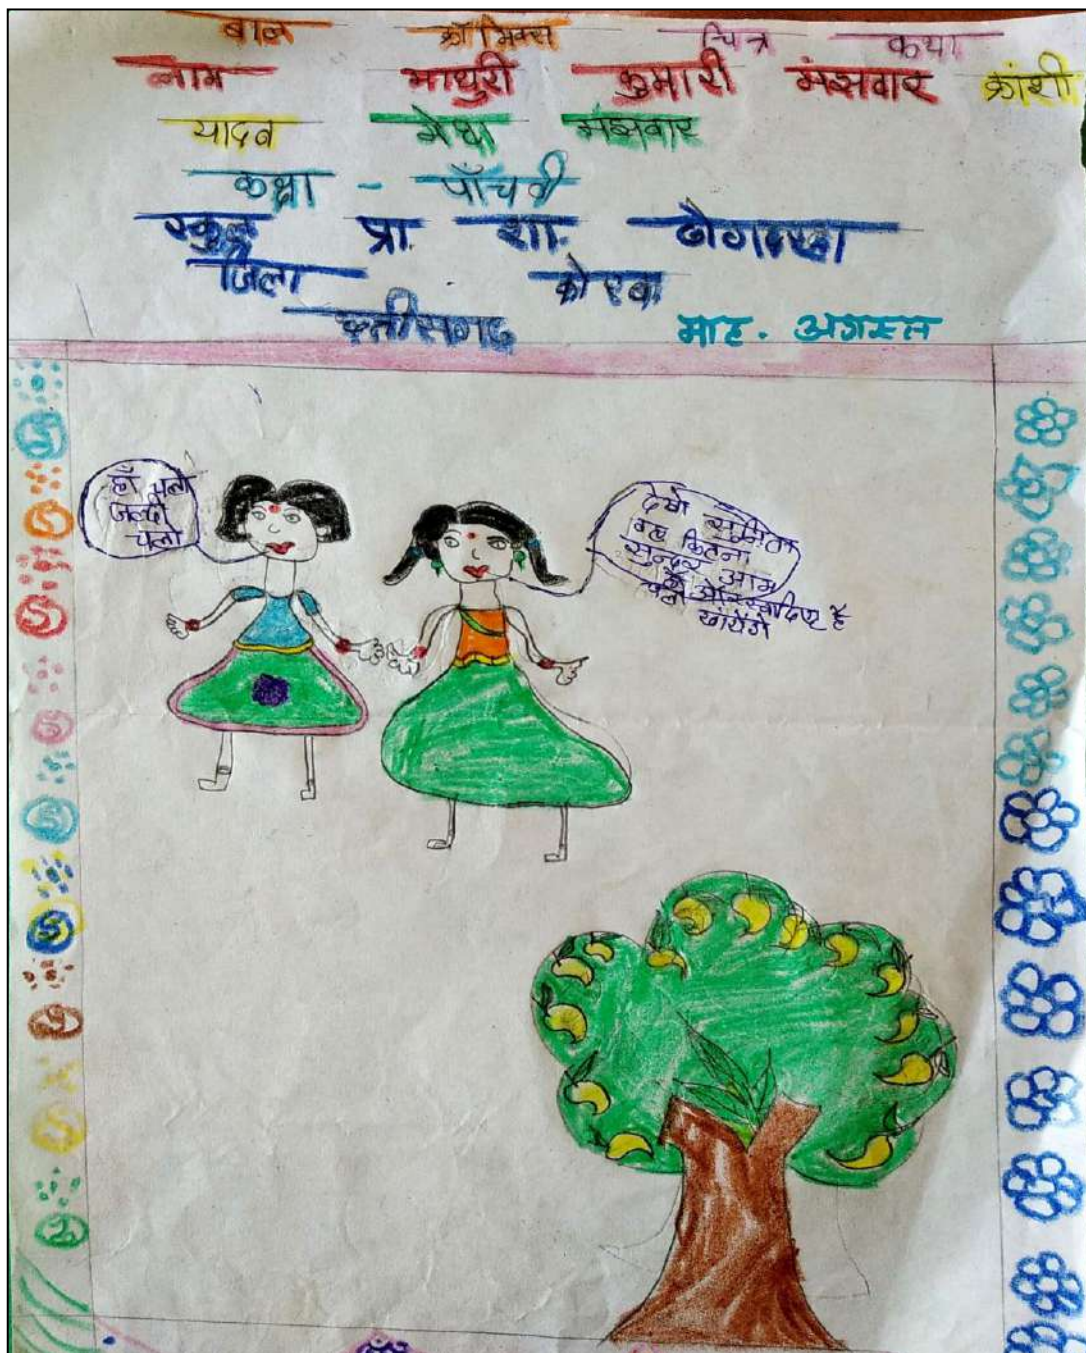 बाल कॉमिक्स चित्र कथा
नाम माधुरी कुमारी मंझवार क्रांशी
यादव मेधा मंझवार
कक्षा - पाँचवी
स्कूल प्रा. शा.
जिला कोरबा
छत्तीसगढ़ माह. अगस्त
हाँ चलो
जल्दी
चलो
देखो
वह कितना
सुन्दर आम
है और स्वादिष्ट है
चलो खायेंगे